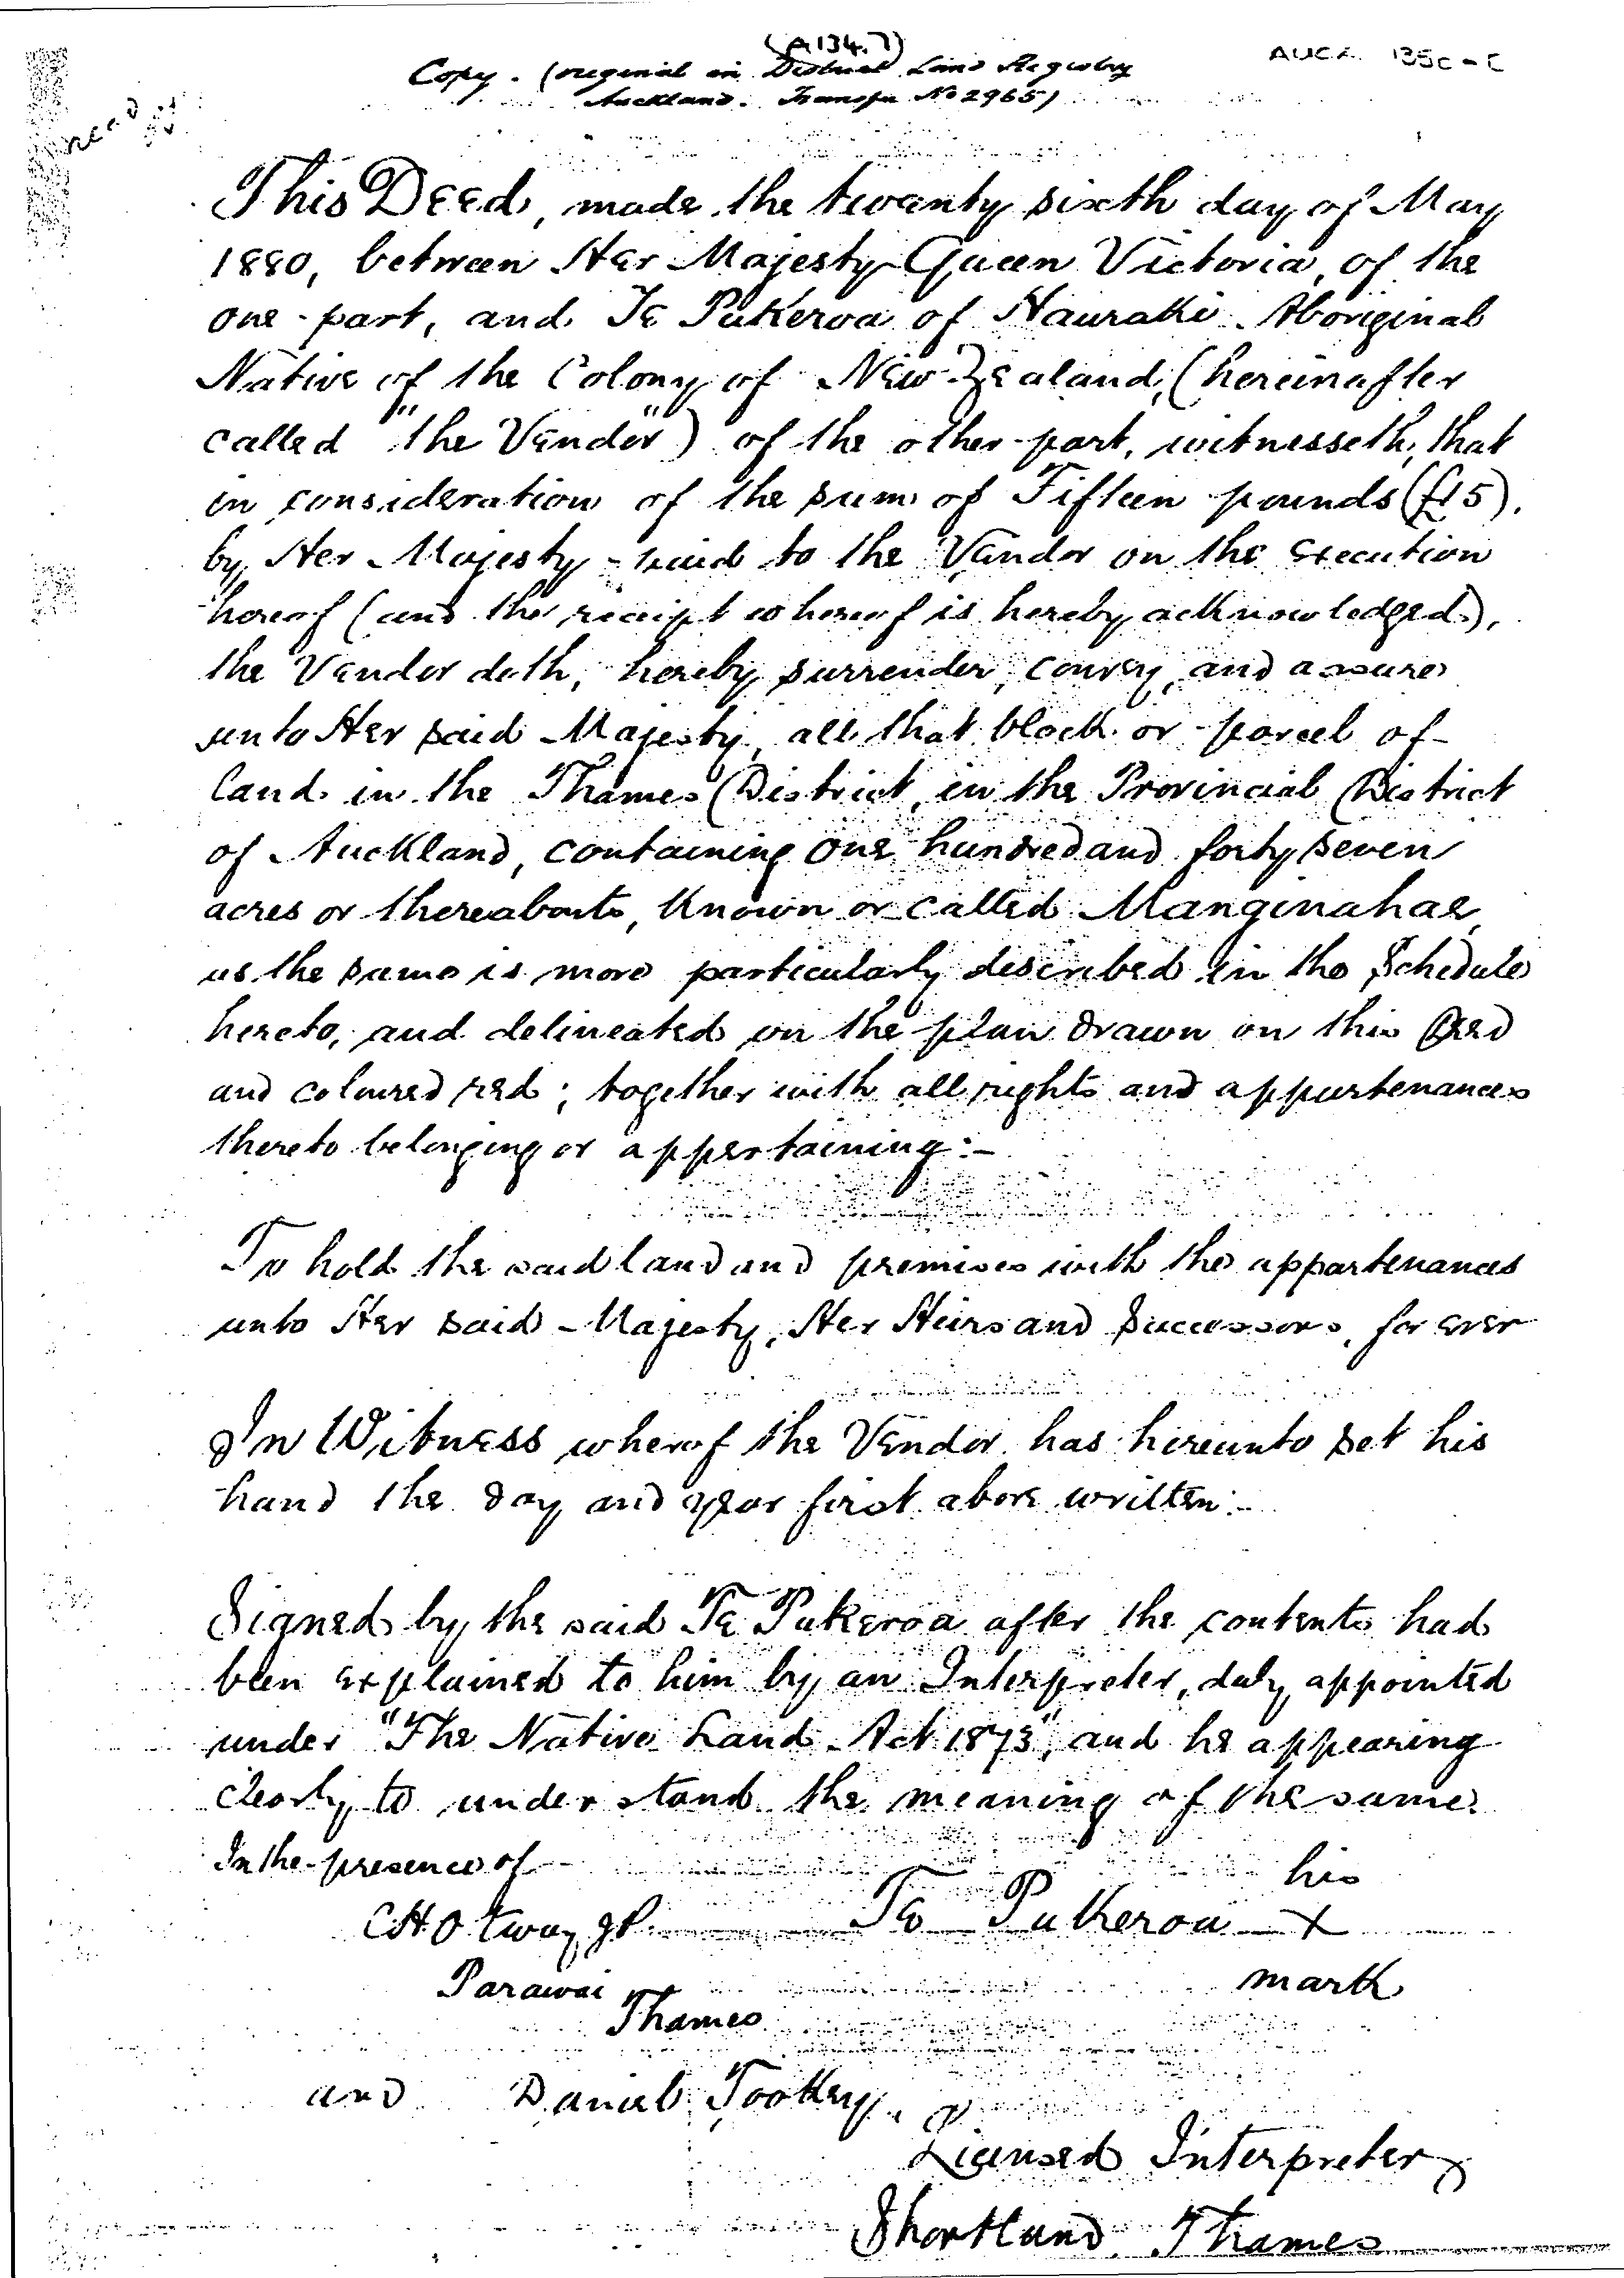 (A134.7)
Copy. (original in District Land Registry
Auckland. Transfer No 2965)
AUCK.
This Deed, made the twenty sixth day of May
1880, between Her Majesty Queen Victoria, of the
one part, and Te Pukeroa of Hauraki Aboriginal
Native of the Colony of New Zealand, (hereinafter
called "the Vendor") of the other part, witnesseth, that
in consideration of the sum of Fifteen pounds (£15).
by Her Majesty paid to the Vendor on the execution
hereof (and the receipt whereof is hereby acknowledged),
the Vendor doth, hereby surrender, convey, and assure
unto Her said Majesty, all that block or parcel of
land in the Thames District, in the Provincial District
of Auckland, containing One hundred and forty seven
acres or thereabouts, known or called Manginahae,
as the same is more particularly described in the Schedule
hereto, and delineated on the plan drawn on this Deed
and coloured red; together with all rights and appurtenances
thereto belonging or appertaining:-
To hold the said land and premises with the appartenances
unto Her said Majesty, Her Heirs and Successors, for ever
In Witness wherof the Vendor has hereunto set his
hand the day and year first above written:-
Signed by the said Te Pukeroa after the contents had
been explained to him by an Interpreter, duly appointed
under "The Native Land Act 1873", and he appearing
clearly to understand the meaning of the same.
In the presence of
his
CH Otway JP. Te Pukeroa X
Parawai mark
Thames
and Daniel Tookey.
Licensed Interpreter
Shortland Thames